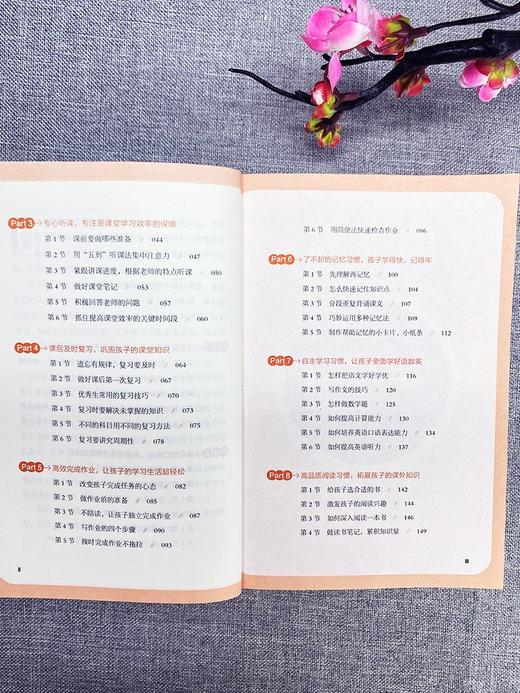 Part 3 专心听课，专注是课堂学习效率的保障
第 1 节 课前要做哪些准备 // 044
第 2 节 用“五到”听课法集中注意力 // 047
第 3 节 紧跟讲课进度，根据老师的特点听课 // 050
第 4 节 做好课堂笔记 // 053
第 5 节 积极回答老师的问题 // 057
第 6 节 抓住提高课堂效率的关键时间段 // 060
Part 4 课后及时复习，巩固孩子的课堂知识
第 1 节 遗忘有规律，复习要及时 // 064
第 2 节 做好课后第一次复习 // 067
第 3 节 优秀生常用的复习技巧 // 070
第 4 节 复习时要解决未掌握的知识 // 073
第 5 节 不同的科目用不同的复习方法 // 075
第 6 节 复习要讲究周期性 // 078
Part 5 高效完成作业，让孩子的学习生活超轻松
第 1 节 改变孩子完成任务的心态 // 082
第 2 节 做作业前的准备 // 085
第 3 节 不陪读，让孩子独立完成作业 // 087
第 4 节 写作业的四个步骤 // 090
第 5 节 按时完成作业不拖拉 // 093
II
第 6 节 用简便法快速检查作业 // 096
Part 6 了不起的记忆习惯，孩子学得快，记得牢
第 1 节 先理解再记忆 // 100
第 2 节 怎么快速记住知识点 // 104
第 3 节 分段重复背诵课文 // 107
第 4 节 巧妙运用多种记忆法 // 109
第 5 节 制作帮助记忆的小卡片、小纸条 // 112
Part 7 自主学习习惯，让孩子全面学好语数英
第 1 节 怎样把语文学好学优 // 116
第 2 节 写作文的技巧 // 120
第 3 节 怎样做数学题 // 125
第 4 节 如何提高计算能力 // 130
第 5 节 如何培养英语口语表达能力 // 134
第 6 节 如何提高英语听力 // 137
Part 8 高品质阅读习惯，拓展孩子的课外知识
第 1 节 给孩子选合适的书 // 142
第 2 节 激发孩子的阅读兴趣 // 144
第 3 节 如何深入阅读一本书 // 146
第 4 节 做读书笔记，累积知识量 // 149
III